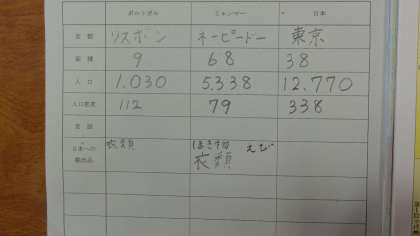 ポルトガル ミャンマー 日本
首都 リスボン ネーピードー 東京
面積 9 68 38
人口 1.030 5.338 12.770
人口密度 112 79 338
言語
日本への 衣類 はきもの えび
輸出品 衣類